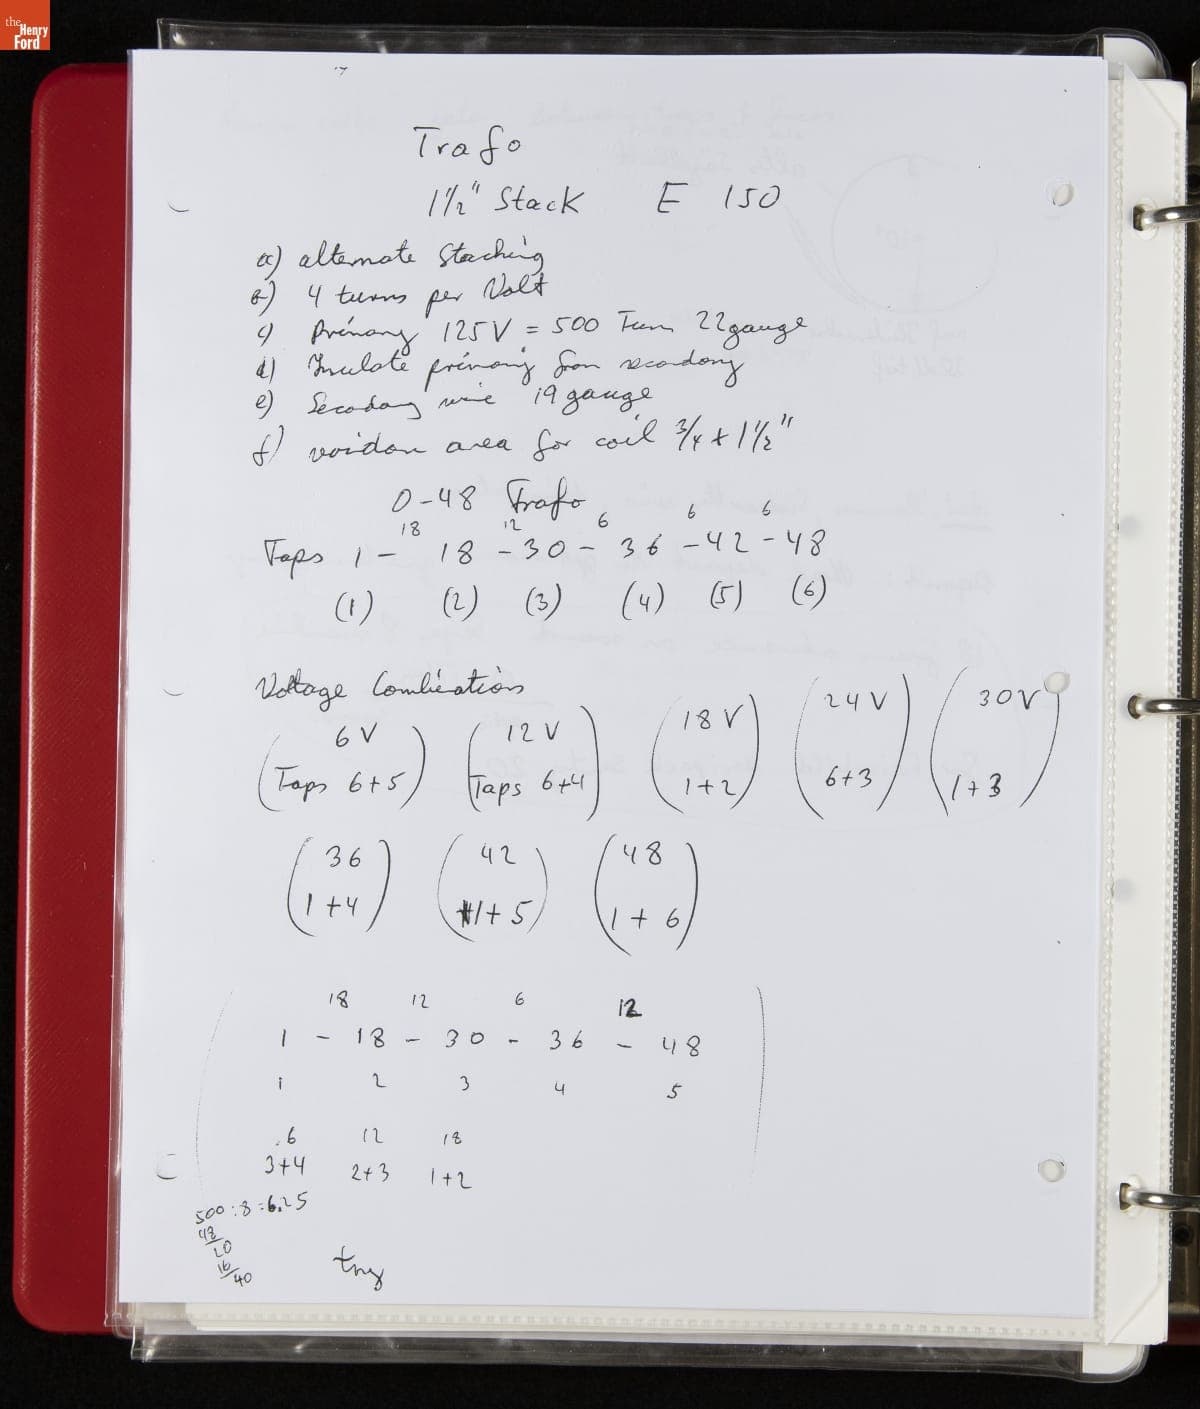 the Henry Ford
Trafo
1 1/2" Stack E 150
a) alternate Staching
b) 4 turns per Volt
c) Primary 125V = 500 Turn 22 gauge
d) Insulate primary from secondary
e) Secodary wire 19 gauge
f) area for coil 3/4 + 1 1/2"
0-48 Trafo
18 12 6 6 6
Taps 1 - 18 - 30 - 36 - 42 - 48
(1) (2) (3) (4) (5) (6)
Voltage Combinations
6V 12V 18V 24V 30V
(Taps 6+5) (Taps 6+4) (1+2) (6+3) (1+3)
36 42 48
1+4 1+5 1+6
18 12 6 12
1 - 18 - 30 - 36 - 48
1 2 3 4 5
6 12 18
3+4 2+3 1+2
500:8=6,25
48
20
16
40
try